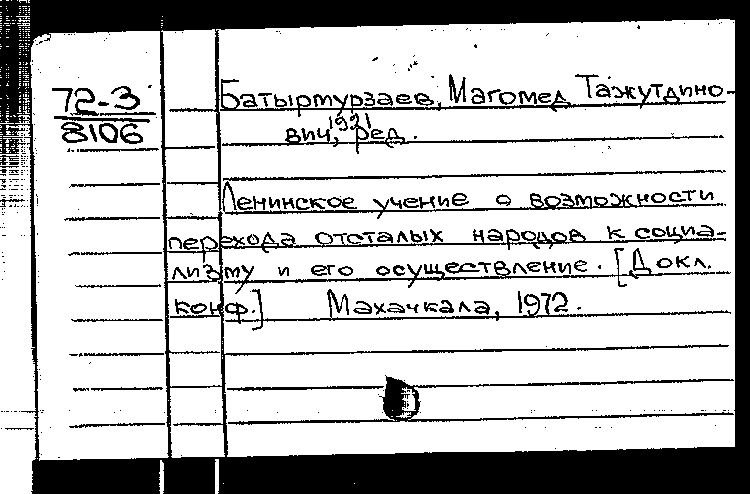 72-3
8106
Батырмурзаев, Магомед Тажутдино-
вич, 1921, ред.
Ленинское учение о возможности
перехода отсталых народов к социа-
лизму и его осуществление. [Докл.
конф.] Махачкала, 1972.